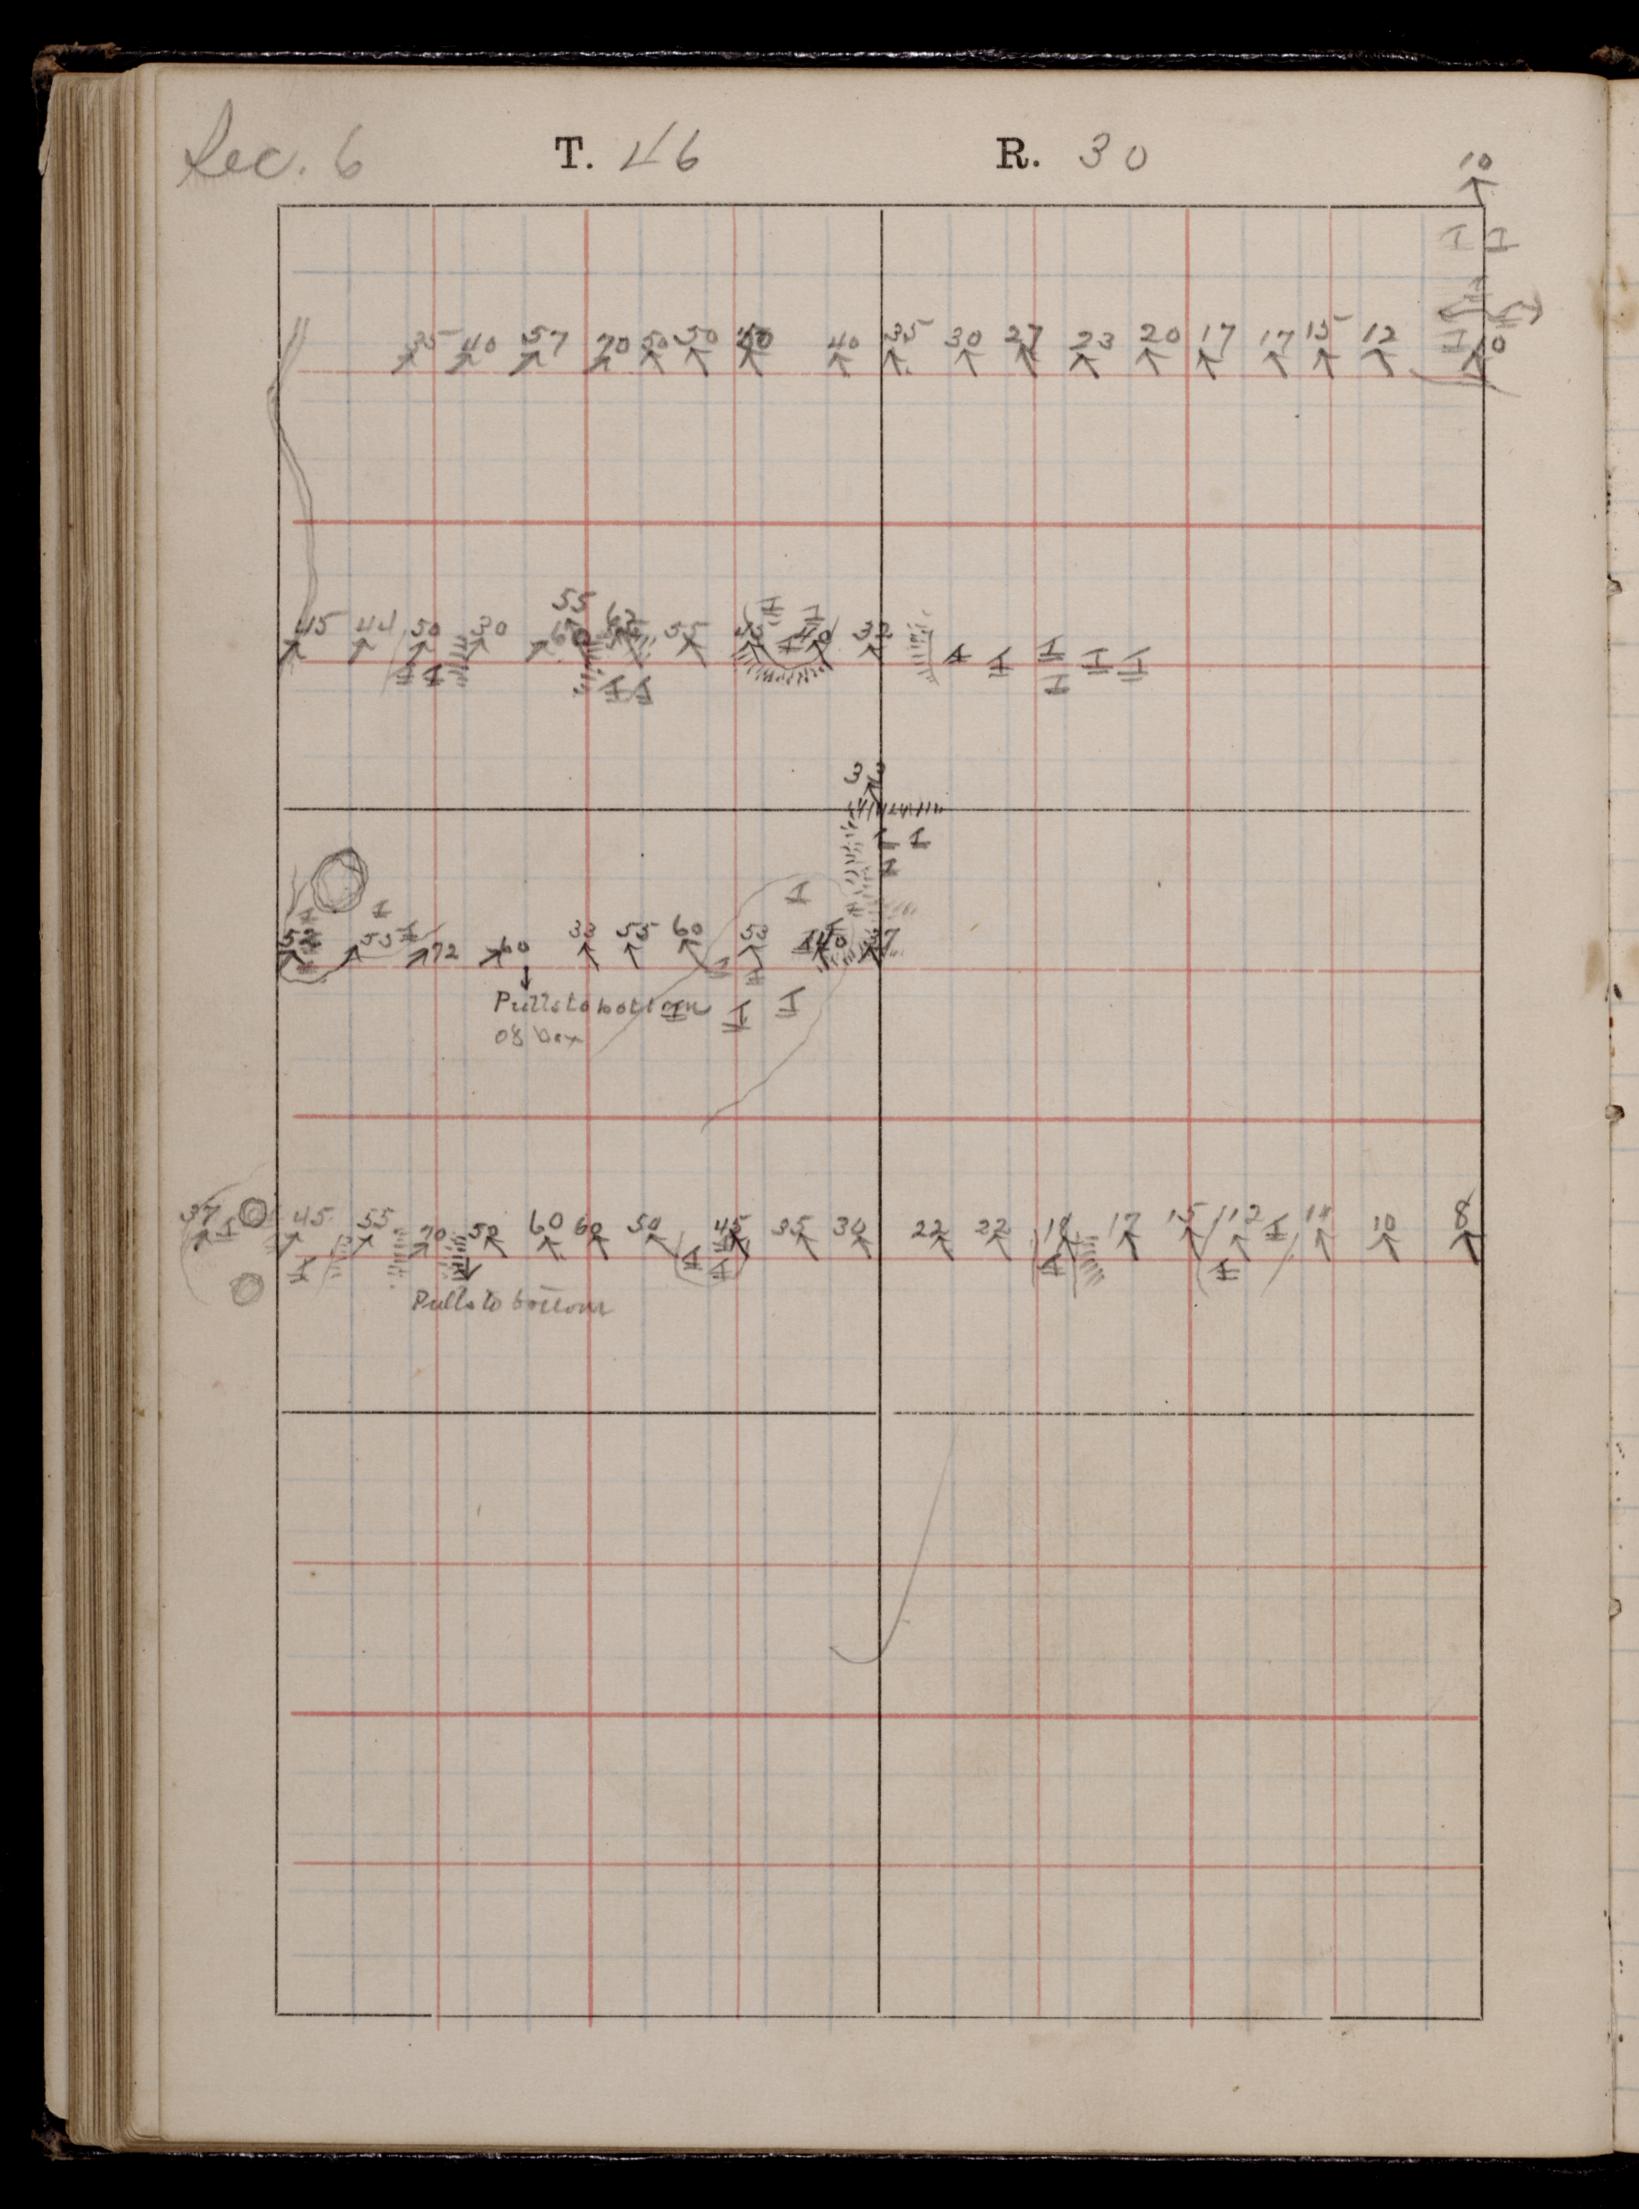 Sec. 6 T. 46 R. 30
10
35 40 57 70 50 50 40 35 30 27 23 20 17 17 15 12 10
55
45 44 50 30 60 55 45 40 32
33
52 55 72 60 33 55 60 53 40 37
Pulls to bottom
of box
37 45 55 70 50 60 60 50 45 35 30 22 22 18 17 15 12 11 10 8
Pulls to bottom